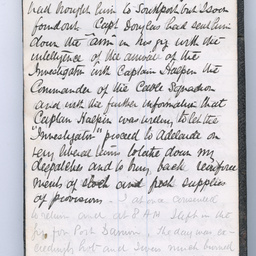 had brought him to Southport but I soon
found out Capt Douglas had sent him
down the "arm" in his gig with the
intelligence of the arrival of the
Investigator with Captain Halpin the
Commander of the Cable Squadron
and with the further information that
Captain Halpin was willing to let the
"Investigator" proceed to Adelaide on
very liberal terms to take down my
despatches and to bring back reinforce
ments of stock and fresh supplies
of provision - I at once arranged
to return and at 8 AM left in the
gig for Port Darwin. The day was ex-
ceedingly hot and I was much burned